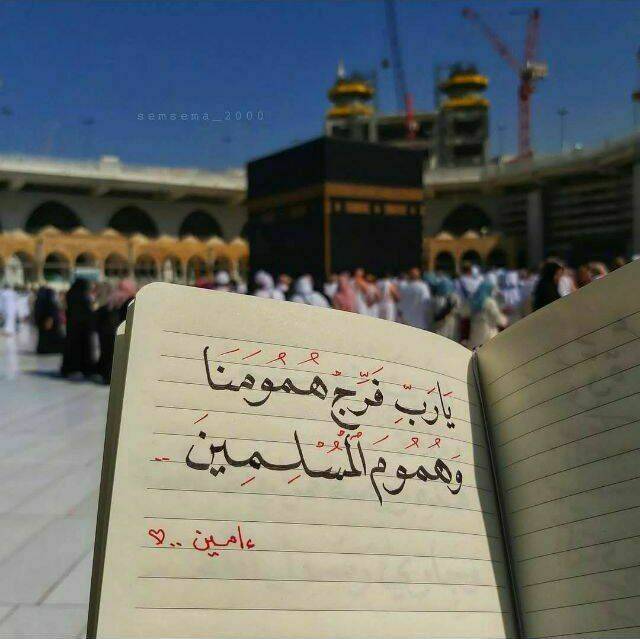 semsema_2000
يَارَبِّ فَرِّجْ هُمُومَنَا
وَهُمُومَ الْمُسْلِمِينَ --
ءامين ..♡